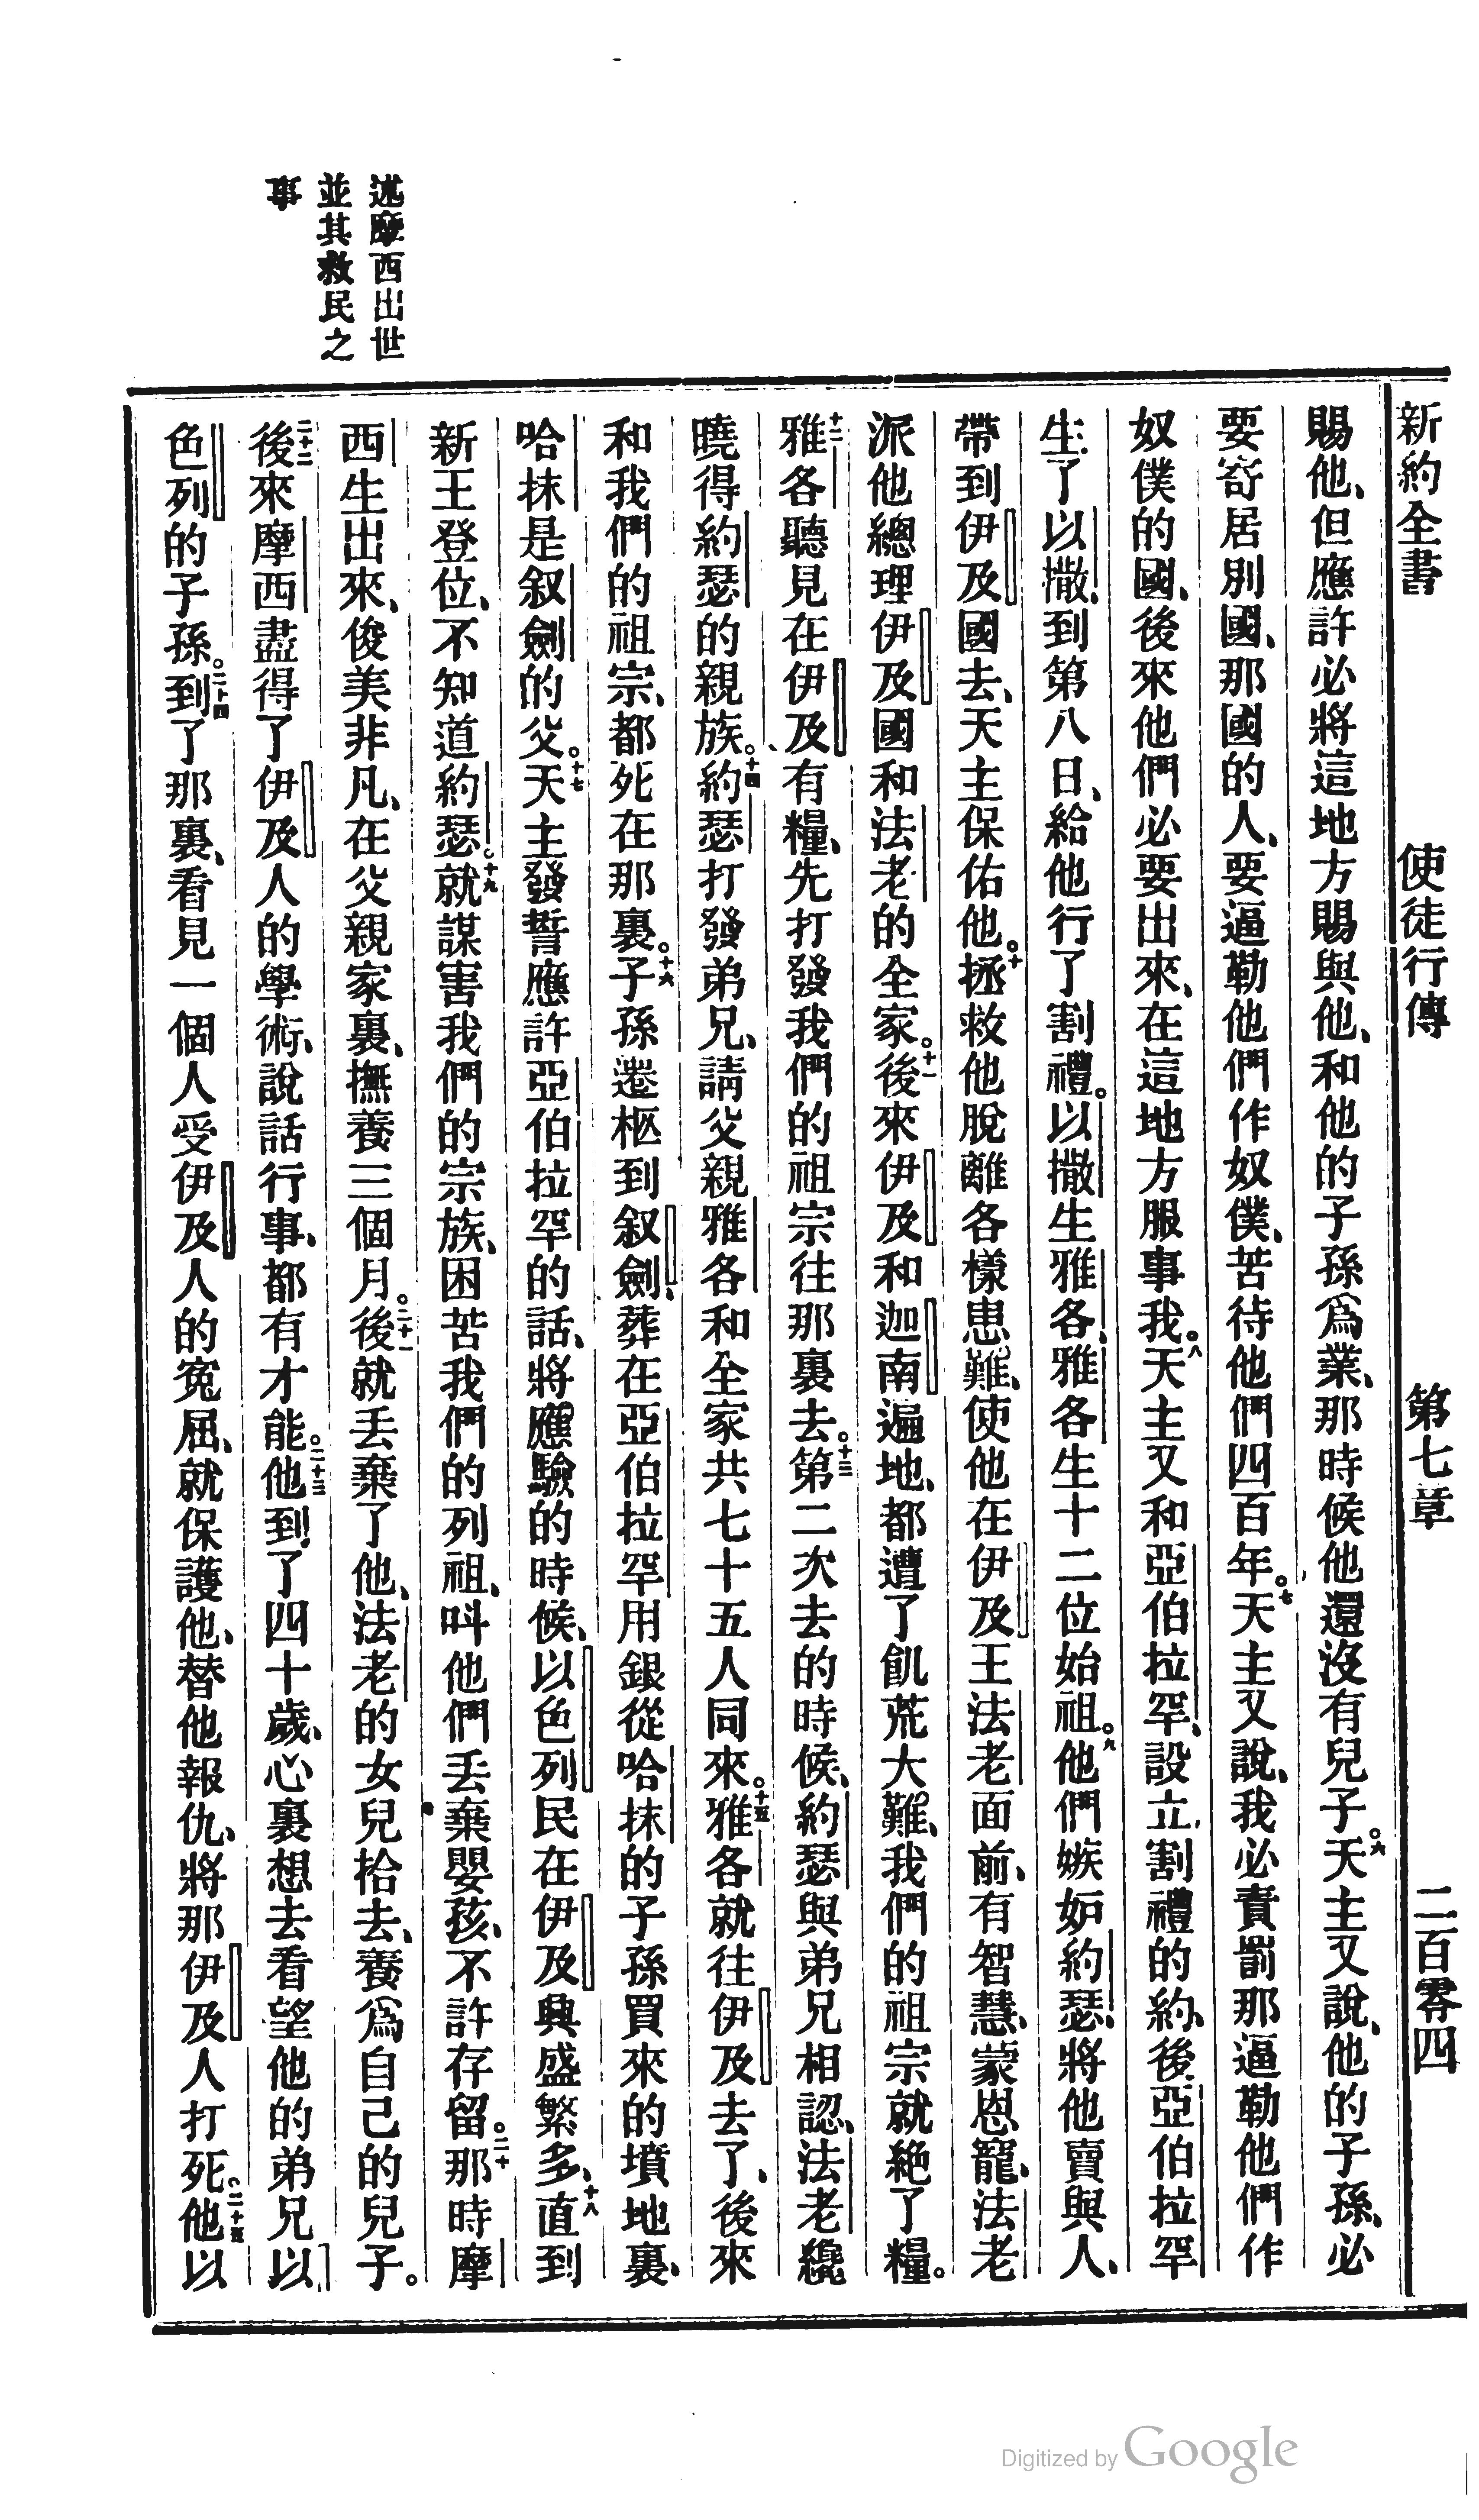 新約全書　使徒行傳　第七章　二百零四
賜他、但應許必將這地方賜與他、和他的子孫爲業、那時候他還沒有兒子。六天主又說、他的子孫、必
要寄居別國、那國的人、要逼勒他們作奴僕、苦待他們四百年。七天主又說、我必責罰那逼勒他們作
奴僕的國、後來他們必要出來、在這地方服事我。八天主又和亞伯拉罕、設立割禮的約、後亞伯拉罕
生了以撒、到第八日、給他行了割禮。以撒生雅各、雅各生十二位始祖。九他們嫉妒約瑟、將他賣與人、
帶到伊及國去、天主保佑他。十拯救他脫離各樣患難、使他在伊及王法老面前、有智慧、蒙恩寵、法老
派他總理伊及國和法老的全家。十一後來伊及和迦南遍地、都遭了飢荒大難、我們的祖宗就絕了糧。
十二雅各聽見在伊及有糧、先打發我們的祖宗往那裏去。十三第二次去的時候、約瑟與弟兄相認、法老纔
曉得約瑟的親族。十四約瑟打發弟兄、請父親雅各和全家共七十五人同來。十五雅各就往伊及去了、後來
和我們的祖宗、都死在那裏。十六子孫遷柩到叙劍、葬在亞伯拉罕用銀從哈抹的子孫買來的墳地裏、
哈抹是叙劍的父。十七天主發誓應許亞伯拉罕的話、將應驗的時候、以色列民在伊及興盛繁多、十八直到
新王登位、不知道約瑟。十九就謀害我們的宗族、困苦我們的列祖、呌他們丟棄嬰孩、不許存留。二十那時摩
西生出來、俊美非凡、在父親家裏、撫養三個月。二十一後就丟棄了他、法老的女兒拾去、養爲自己的兒子。
二十二後來摩西盡得了伊及人的學術、說話行事、都有才能。二十三他到了四十歲、心裏想去看望他的弟兄以
色列的子孫。二十四到了那裏、看見一個人受伊及人的寃屈、就保護他、替他報仇、將那伊及人打死。二十五他以
述摩西出世
並其救民之
事
Digitized by Google